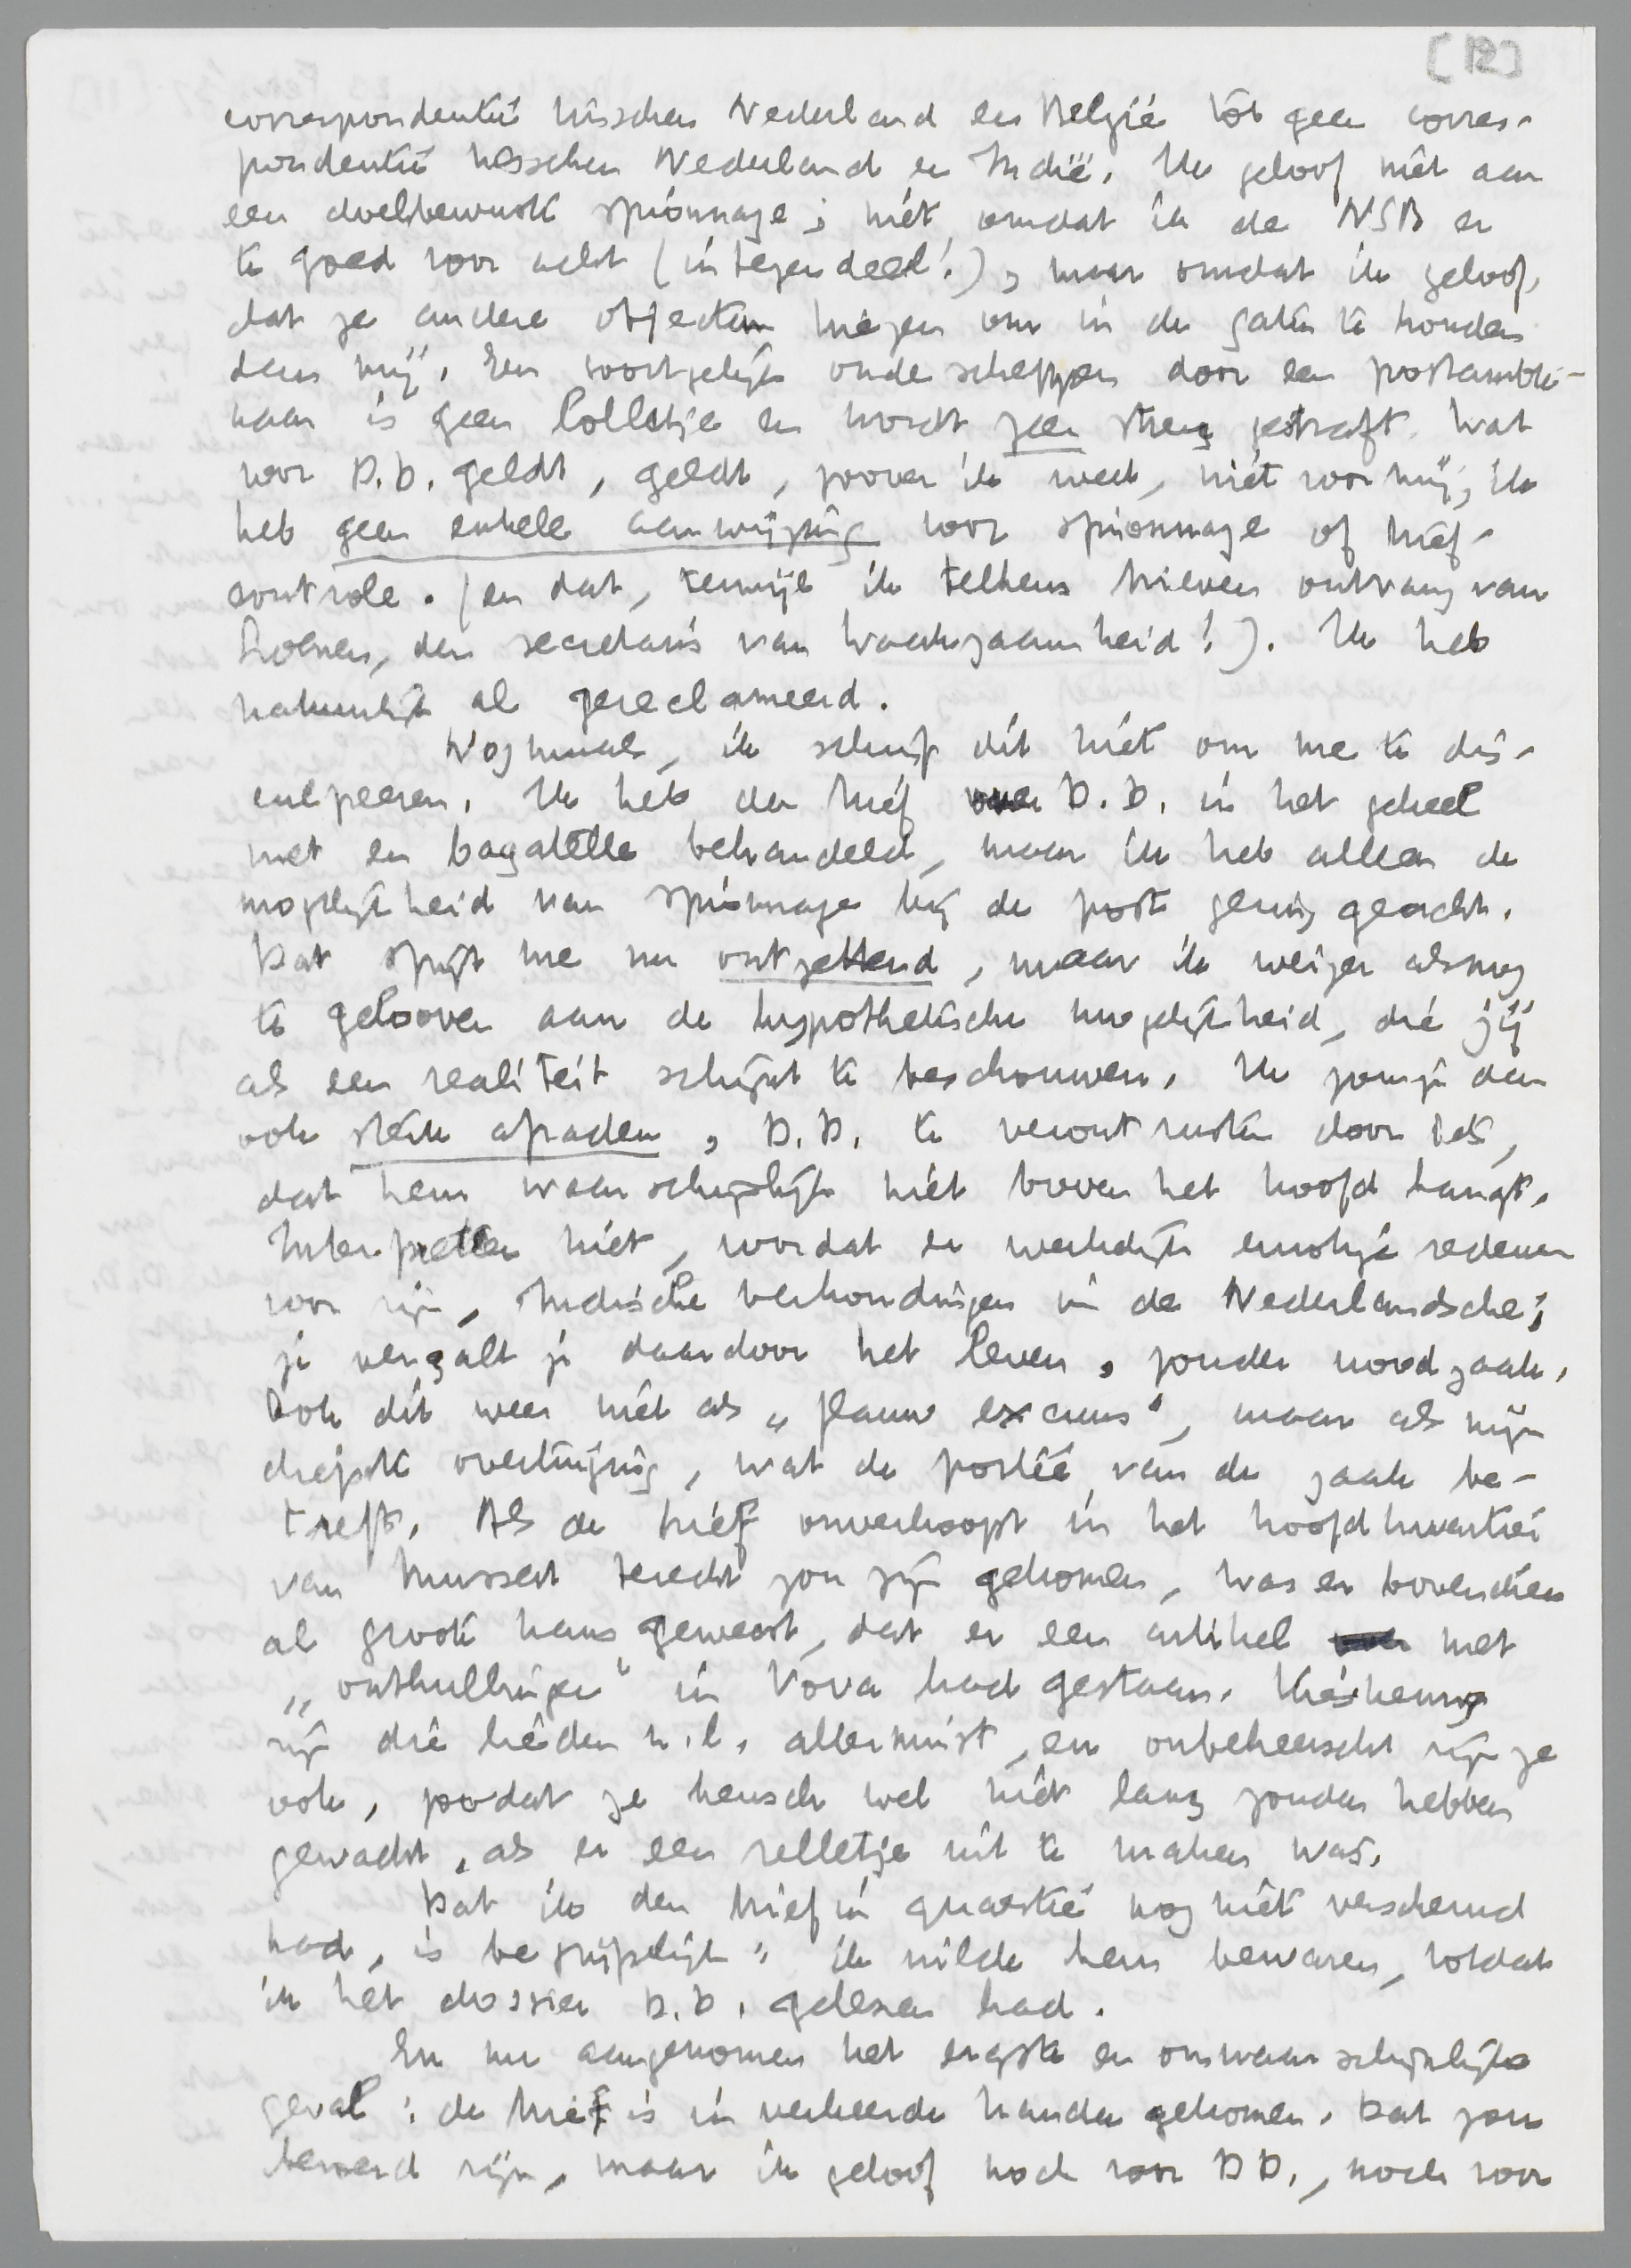 [12]
correspondentie tusschen Nederland en België tot geen corres-
pondentie tusschen Nederland en Indië. Ik geloof niet aan
een doelbewuste spionnage; niet omdat ik de NSB er
te goed voor acht (integendeel!), maar omdat ik geloof,
dat ze andere objecten kiezen om in de gaten te houden
dan mij. Een soortgelijk onderscheppen door een postambte-
naar is geen lolletje en wordt zeer streng gestraft. Wat
voor D.D. geldt, geldt, zoover ik weet, niet voor mij; ik
heb geen enkele aanwijzing voor spionnage of brief-
controle. (en dat, terwijl ik telkens brieven ontvang van
 den secretaris van Waakzaamheid!). Ik heb
natuurlijk al gereclameerd.
Nogmaals, ik schrijf dit niet om me te dis-
culpeeren. Ik heb den brief over D.D. in het geheel
niet en bagatelle behandeld, maar ik heb alleen de
mogelijkheid van spionnage bij de post gering geacht.
Dat spijt me nu ontzettend, maar ik weiger alsnog
te gelooven aan de hypothetische mogelijkheid, die jij
als een realiteit schijnt te beschouwen. Ik zou je dan
ook sterk afraden, D.D. te verontrusten door iets,
dat hem waarschijnlijk niet boven het hoofd hangt.
Interpreteer niet, voordat er werkelijk ernstige redenen
voor zijn, Indische verhoudingen in de Nederlandsche;
je vergalt je daardoor het leven, zonder noodzaak.
Ook dit weer niet als „flauw excuus", maar als mijn
diepste overtuiging, wat de portée van de zaak be-
treft. Als de brief onverhoopt in het hoofdkwartier
van Mussert terecht zou zijn gekomen, was er bovendien
al groote kans geweest, dat er een artikel met
„onthullingen" in Vova had gestaan. Kieskeurig
zijn die lieden n.l. allerminst, en onbeheerscht zijn ze
ook, zoodat ze heusch wel niet lang zouden hebben
gewacht, als er een relletje uit te maken was.
Dat ik den brief in quaestie nog niet verscheurd
had, is begrijpelijk: ik wilde hem bewaren, totdat
ik het dossier D.D. gelezen had.
En nu aangenomen het ergste en onwaarschijnlijke
geval: de brief is in verkeerde handen gekomen. Dat zou
beroerd zijn, maar ik geloof noch voor D.D., noch voor